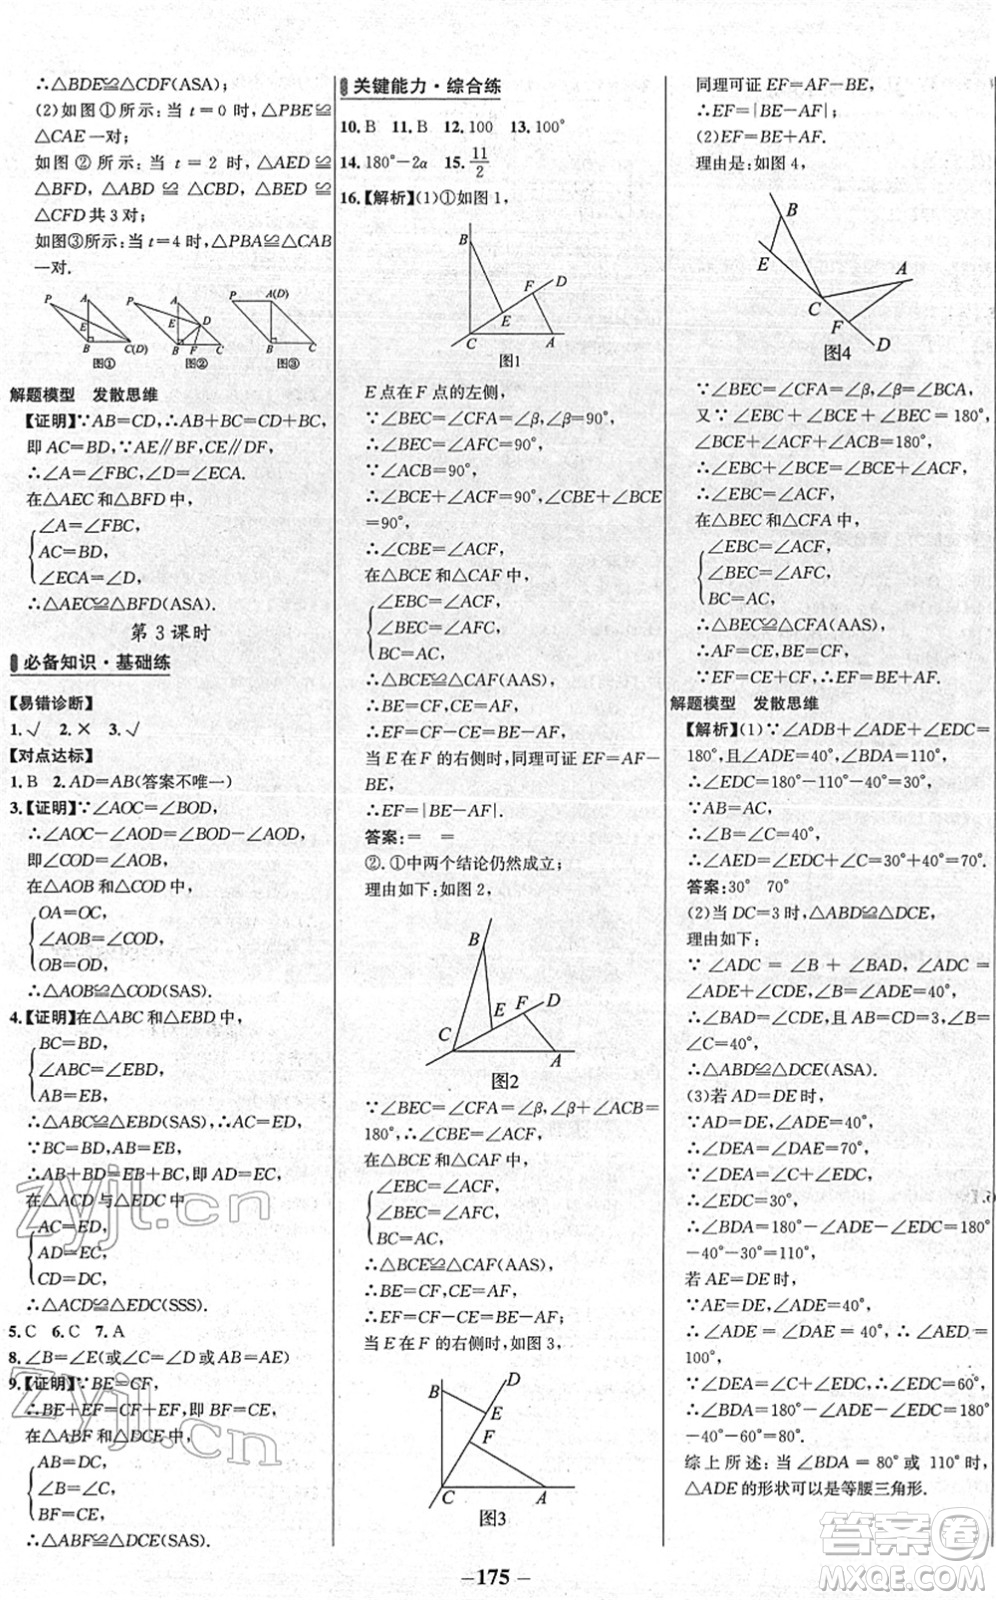 ∴△BDE≌△CDF(ASA).
(2)如图①所示:当 t=0 时,△PBE≌
△CAE 一对;
如图②所示:当 t=2 时,△AED≌
△BFD,△ABD≌△CBD,△BED≌
△CFD 共 3 对;
如图③所示:当 t=4 时,△PBA≌△CAB
一对.
P A E B C(D)
图①
P A E D B F C
图②
P A(D) B C
图③
解题模型 发散思维
【证明】∵AB=CD,∴AB+BC=CD+BC,
即 AC=BD,∵AE∥BF,CE∥DF,
∴∠A=∠FBC,∠D=∠ECA.
在△AEC 和△BFD 中,
∠A=∠FBC,
AC=BD,
∠ECA=∠D,
∴△AEC≌△BFD(ASA).
第 3 课时
必备知识·基础练
【易错诊断】
1.√ 2.× 3.√
【对点达标】
1.B 2.AD=AB(答案不唯一)
3.【证明】∵∠AOC=∠BOD,
∴∠AOC-∠AOD=∠BOD-∠AOD,
即∠COD=∠AOB,
在△AOB 和△COD 中,
OA=OC,
∠AOB=∠COD,
OB=OD,
∴△AOB≌△COD(SAS).
4.【证明】在△ABC 和△EBD 中,
BC=BD,
∠ABC=∠EBD,
AB=EB,
∴△ABC≌△EBD(SAS),∴AC=ED,
∵BC=BD,AB=EB,
∴AB+BD=EB+BC,即 AD=EC,
在△ACD 与△EDC 中,
AC=ED,
AD=EC,
CD=DC,
∴△ACD≌△EDC(SSS).
5.C 6.C 7.A
8.∠B=∠E(或∠C=∠D 或 AB=AE)
9.【证明】∵BE=CF,
∴BE+EF=CF+EF,即 BF=CE,
在△ABF 和△DCE 中,
AB=DC,
∠B=∠C,
BF=CE,
∴△ABF≌△DCE(SAS).
关键能力·综合练
10.B 11.B 12.100 13.100°
14.180°-2α 15. 11/2
16.【解析】(1)①如图 1,
B D F E C A
图1
E 点在 F 点的左侧,
∵∠BEC=∠CFA=∠β,∠β=90°,
∴∠BEC=∠AFC=90°,
∵∠ACB=90°,
∴∠BCE+∠ACF=90°,∠CBE+∠BCE
=90°,
∴∠CBE=∠ACF,
在△BCE 和△CAF 中,
∠EBC=∠ACF,
∠BEC=∠AFC,
BC=AC,
∴△BCE≌△CAF(AAS),
∴BE=CF,CE=AF,
∴EF=CF-CE=BE-AF,
当 E 在 F 的右侧时,同理可证 EF=AF-
BE,
∴EF=|BE-AF|.
答案:= =
②.①中两个结论仍然成立;
理由如下:如图 2,
B E F D C A
图2
∵∠BEC=∠CFA=∠β,∠β+∠ACB=
180°,∴∠CBE=∠ACF,
在△BCE 和△CAF 中,
∠EBC=∠ACF,
∠BEC=∠AFC,
BC=AC,
∴△BCE≌△CAF(AAS),
∴BE=CF,CE=AF,
∴EF=CF-CE=BE-AF,
当 E 在 F 的右侧时,如图 3,
B D E F C A
图3
同理可证 EF=AF-BE,
∴EF=|BE-AF|;
(2)EF=BE+AF.
理由是:如图 4,
B E A C F D
图4
∵∠BEC=∠CFA=∠β,∠β=∠BCA,
又∵∠EBC+∠BCE+∠BEC=180°,
∠BCE+∠ACF+∠ACB=180°,
∴∠EBC+∠BCE=∠BCE+∠ACF,
∴∠EBC=∠ACF,
在△BEC 和△CFA 中,
∠EBC=∠ACF,
∠BEC=∠AFC,
BC=AC,
∴△BEC≌△CFA(AAS),
∴AF=CE,BE=CF,
∵EF=CE+CF,∴EF=BE+AF.
解题模型 发散思维
【解析】(1)∵∠ADB+∠ADE+∠EDC=
180°,且∠ADE=40°,∠BDA=110°,
∴∠EDC=180°-110°-40°=30°,
∵AB=AC,
∴∠B=∠C=40°,
∴∠AED=∠EDC+∠C=30°+40°=70°.
答案:30° 70°
(2)当 DC=3 时,△ABD≌△DCE,
理由如下:
∵∠ADC=∠B+∠BAD,∠ADC=
∠ADE+∠CDE,∠B=∠ADE=40°,
∴∠BAD=∠CDE,且 AB=CD=3,∠B=
∠C=40°,
∴△ABD≌△DCE(ASA).
(3)若 AD=DE 时,
∵AD=DE,∠ADE=40°,
∴∠DEA=∠DAE=70°,
∵∠DEA=∠C+∠EDC,
∴∠EDC=30°,
∴∠BDA=180°-∠ADE-∠EDC=180°
-40°-30°=110°,
若 AE=DE 时,
∵AE=DE,∠ADE=40°,
∴∠ADE=∠DAE=40°,∴∠AED=
100°,
∵∠DEA=∠C+∠EDC,∴∠EDC=60°,
∴∠BDA=180°-∠ADE-∠EDC=180°
-40°-60°=80°.
综上所述:当∠BDA=80°或 110°时,
△ADE 的形状可以是等腰三角形.
-175-
zyjl.cn
zyjl.cn
答案圈
MXQE.COM